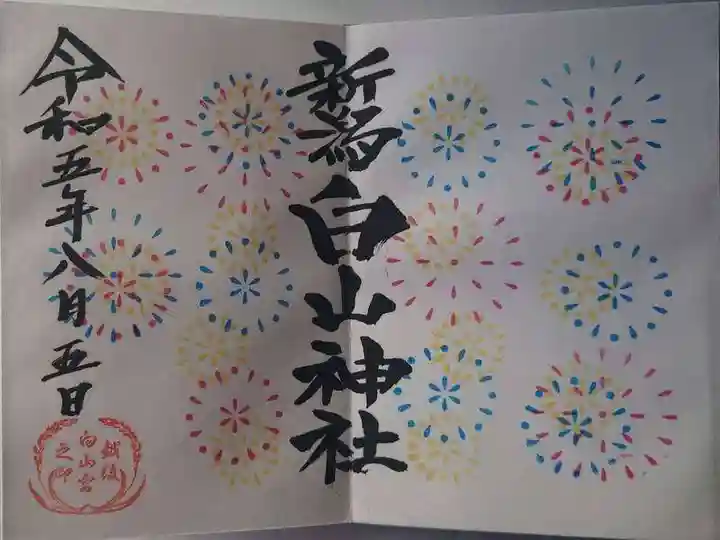 新潟白山神社
令和五年八月五日
越後
白山宮
之印